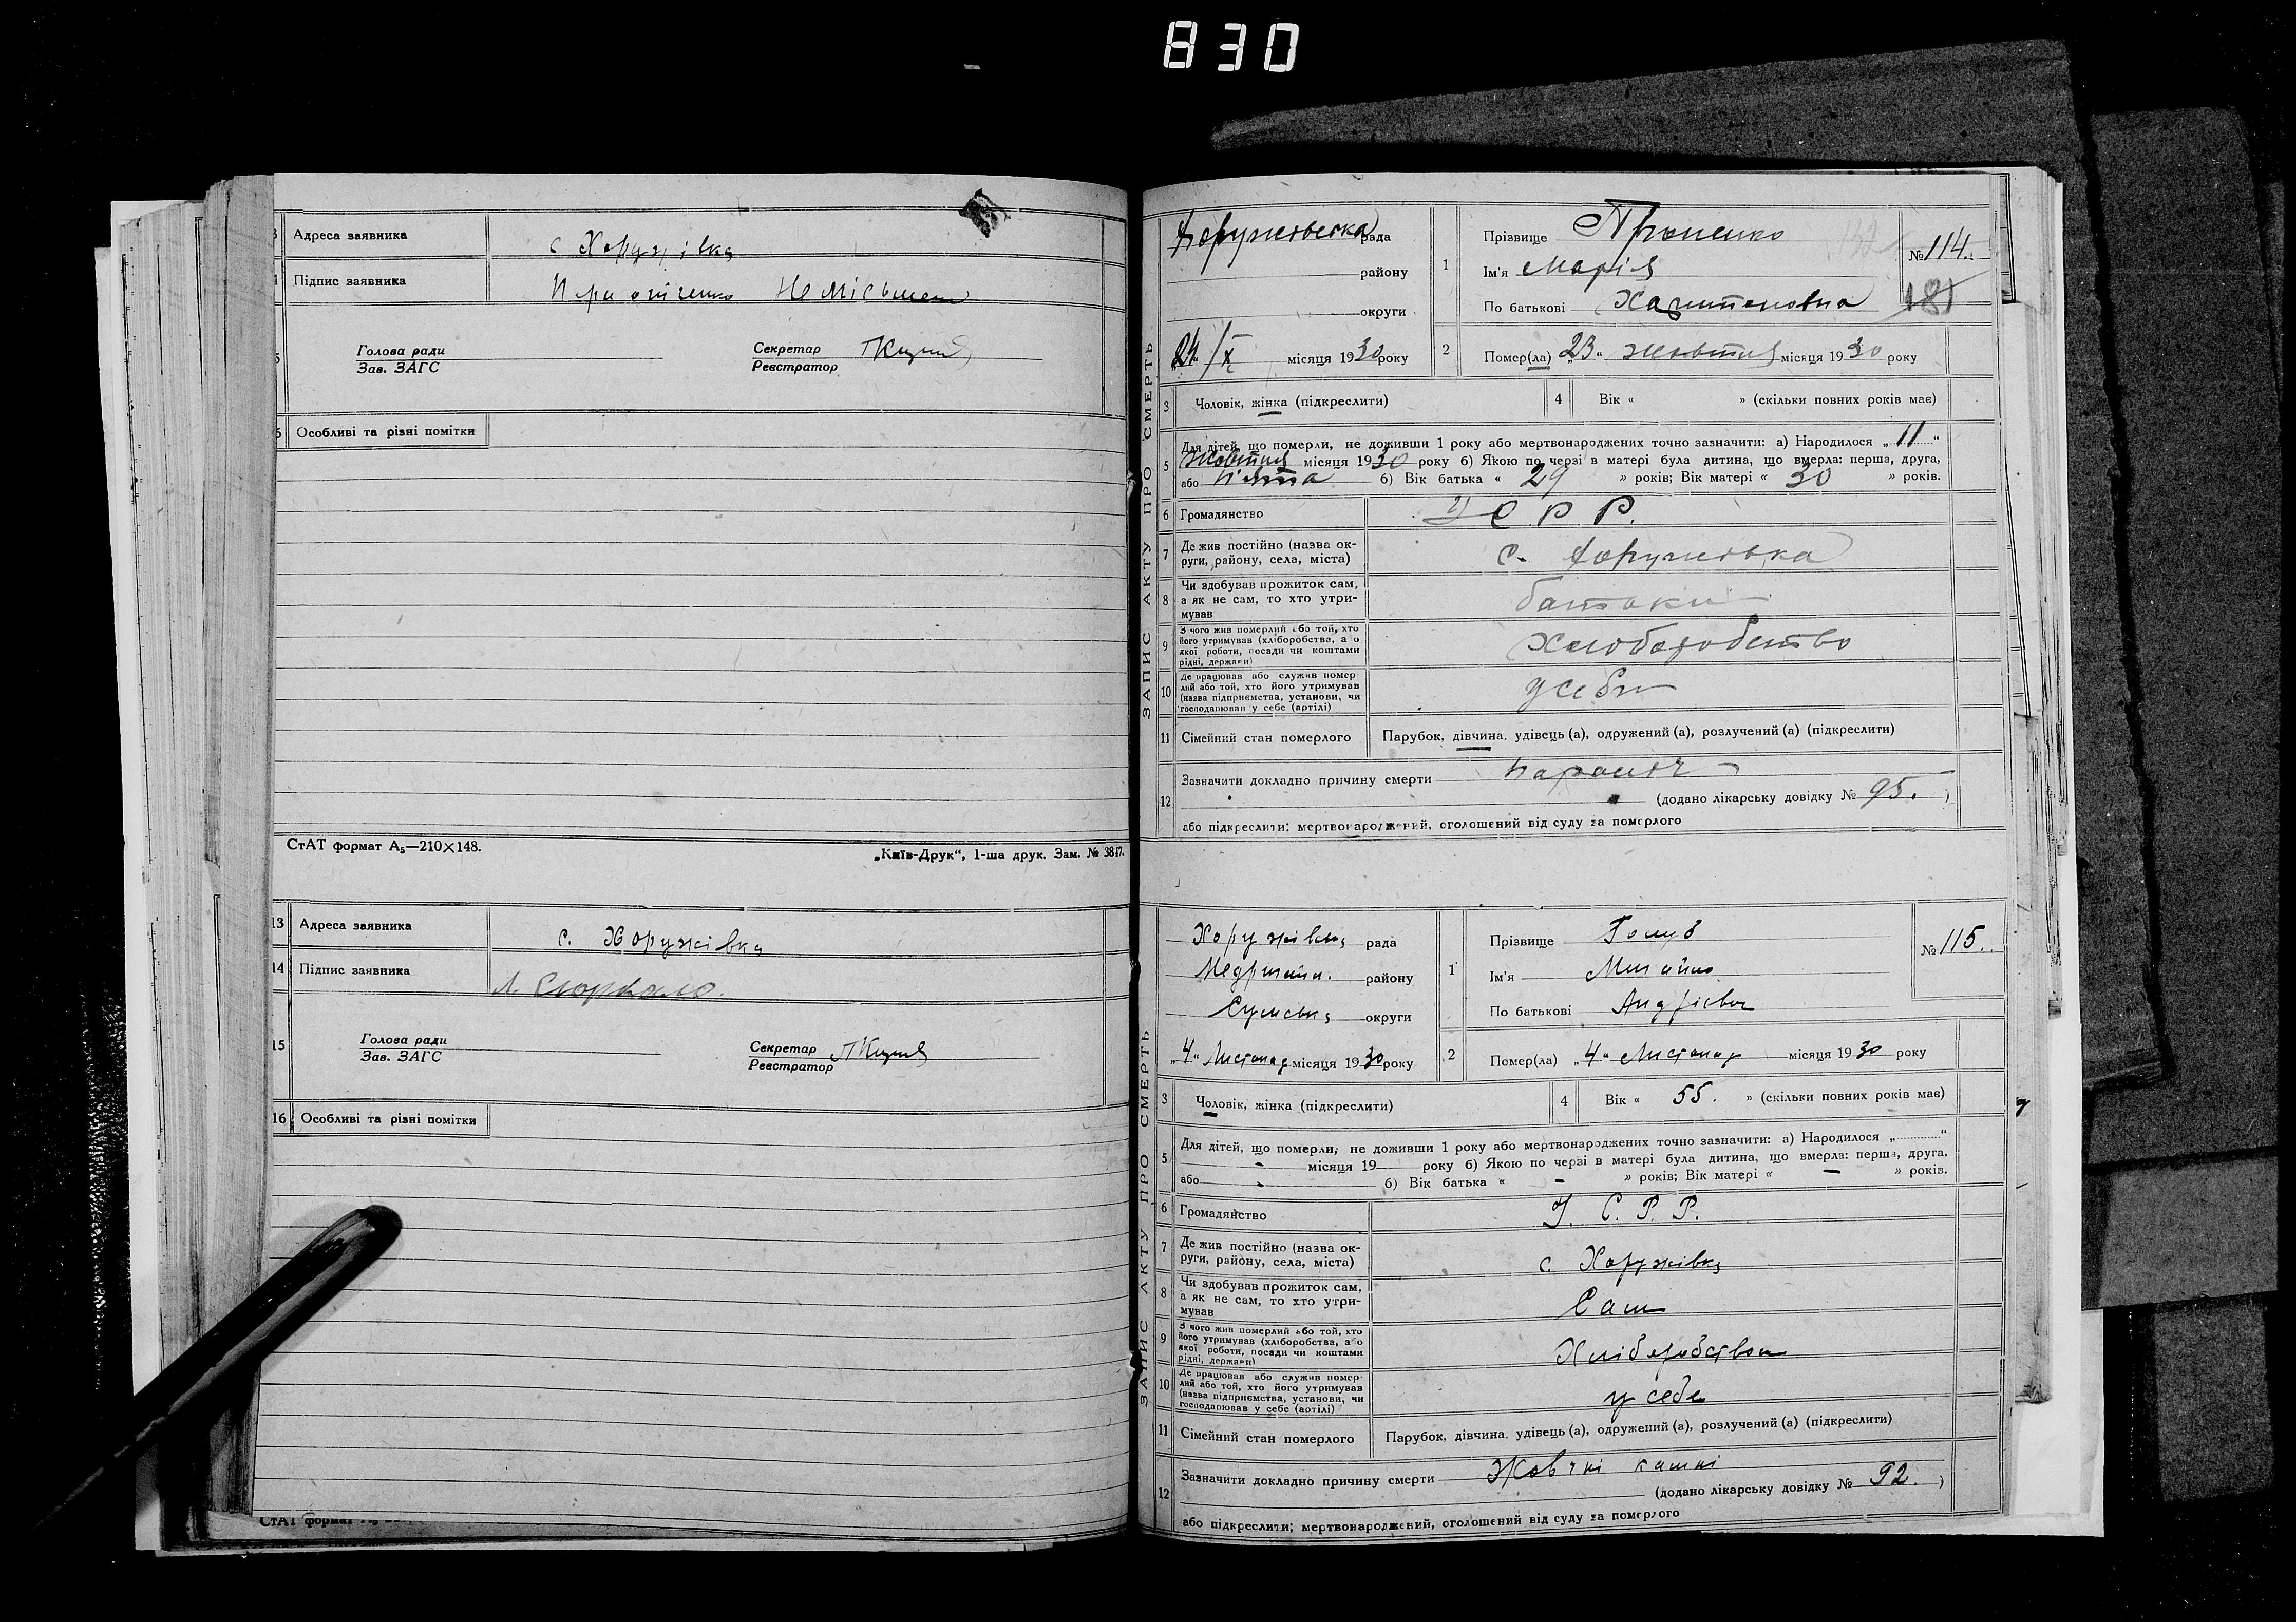 830
Адреса заявника с Хоружівка
Підпис заявника Неписьмен
Голова ради
Зав. ЗАГС
Секретар
Реєстратор
Особливі та різні помітки
СтАТ формат А₅—210×148.
„Київ-Друк“, 1-ша друк. Зам. № 3847.
13 Адреса заявника с. Хоружівка
14 Підпис заявника
15 Голова ради
Зав. ЗАГС
Секретар
Реєстратор
16 Особливі та різні помітки
СтАТ формат
ЗАПИС АКТУ ПРО СМЕРТЬ
рада
району
округи
24/X місяця 1930 року
1 Прізвище
Ім'я Марія
По батькові Харитоновна
№ 114.
132
181
2 Помер(ла) „23“ жовтня місяця 1930 року
3 Чоловік, жінка (підкреслити)
4 Вік « » (скільки повних років має)
5 Для дітей, що померли, не доживши 1 року або мертвонароджених точно зазначити: а) Народилося „11“
жовтня місяця 1930 року б) Якою по черзі в матері була дитина, що вмерла: перша, друга,
або п'ята б) Вік батька « 29 » років; Вік матері « 30 » років.
6 Громадянство УСРР.
7 Де жив постійно (назва округи, району, села, міста) с. Хоружовка
8 Чи здобував прожиток сам, а як не сам, то хто утримував батьки
9 З чого жив померлий або той, хто його утримував (хліборобства, або якої роботи, посади чи коштами рідні, держави) хлоборобство
10 Де працював або служив померлий або той, хто його утримував (назва підприємства, установи, чи господарював у себе (артілі) у себе
11 Сімейний стан померлого Парубок, дівчина, удівець (а), одружений (а), розлучений (а) (підкреслити)
12 Зазначити докладно причину смерти
(додано лікарську довідку № 95. )
або підкреслити: мертвонароджений, оголошений від суду за померлого
ЗАПИС АКТУ ПРО СМЕРТЬ
Хоружівська рада
району
Сумська округи
„4“ Листопад місяця 1930 року
1 Прізвище Голуб
Ім'я Михайло
По батькові Андрієвич
№ 115.
2 Помер(ла) „4“ Листопад місяця 1930 року
3 Чоловік, жінка (підкреслити)
4 Вік « 55. » (скільки повних років має)
5 Для дітей, що померли, не доживши 1 року або мертвонароджених точно зазначити: а) Народилося „ “
- місяця 19 року б) Якою по черзі в матері була дитина, що вмерла: перша, друга,
або - б) Вік батька « - » років; Вік матері « - » років.
6 Громадянство У. С. Р. Р.
7 Де жив постійно (назва округи, району, села, міста) с. Хоружівка
8 Чи здобував прожиток сам, а як не сам, то хто утримував Сам
9 З чого жив померлий або той, хто його утримував (хліборобства, або якої роботи, посади чи коштами рідні, держави) Хліборобством
10 Де працював або служив померлий або той, хто його утримував (назва підприємства, установи, чи господарював у себе (артілі) у себе
11 Сімейний стан померлого Парубок, дівчина, удівець (а), одружений (а), розлучений (а) (підкреслити)
12 Зазначити докладно причину смерти Жовчні камні
(додано лікарську довідку № 92. )
або підкреслити: мертвонароджений, оголошений від суду за померлого